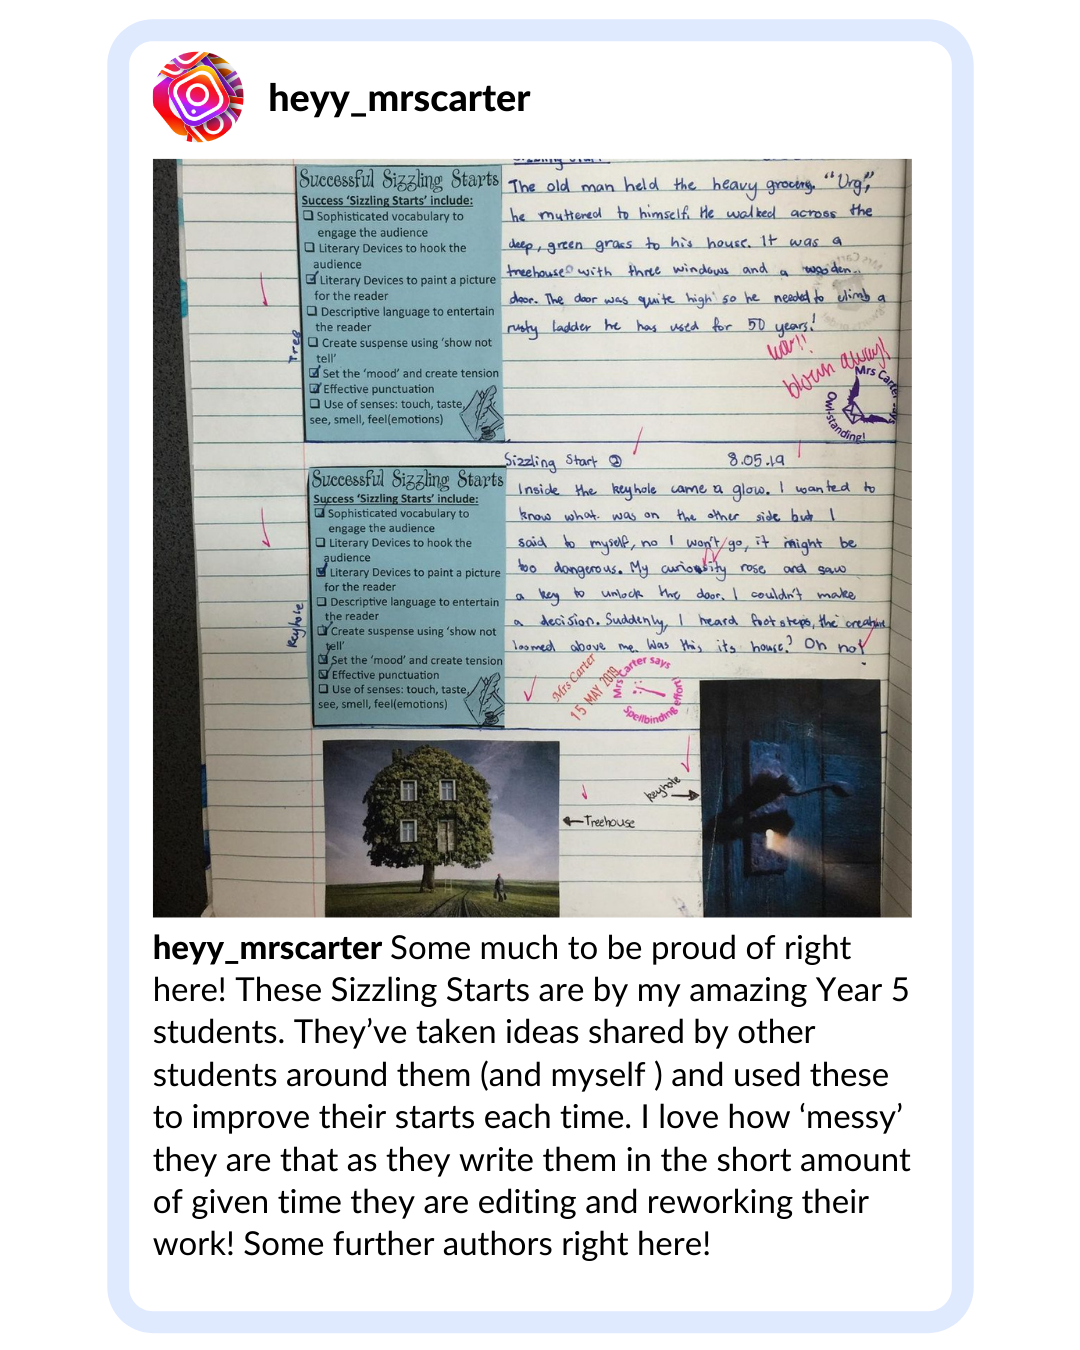 heyy_mrscarter
Sizzling Start
Successful Sizzling Starts
Success 'Sizzling Starts' include:
Sophisticated vocabulary to
engage the audience
Literary Devices to hook the
audience
Literary Devices to paint a picture
for the reader
Descriptive language to entertain
the reader
Create suspense using 'show not
tell'
Set the 'mood' and create tension
Effective punctuation
Use of senses: touch, taste,
see, smell, feel(emotions)
Tree
The old man held the heavy "Urg",
he muttered to himself. He walked across the
deep, green grass to his house. It was a
treehouse with three windows and a wooden
door. The door was quite high so he needed to climb a
rusty ladder he has used for 50 years!
blown away!
Mrs Carter says
Owl-standing!
Sizzling Start 2
8.05.19
Successful Sizzling Starts
Success 'Sizzling Starts' include:
Sophisticated vocabulary to
engage the audience
Literary Devices to hook the
audience
Literary Devices to paint a picture
for the reader
Descriptive language to entertain
the reader
Create suspense using 'show not
tell'
Set the 'mood' and create tension
Effective punctuation
Use of senses: touch, taste,
see, smell, feel(emotions)
Keyhole
Inside the keyhole came a glow. I wanted to
know what was on the other side but I
said to myself, no I won't go, it might be
too dangerous. My curiousity rose and saw
a key to unlock the door. I couldn't make
a decision. Suddenly, I heard footsteps, the creature
loomed above me. Was this its house? Oh no!
Mrs Carter
15 MAY 2019
Mrs Carter says
Spellbinding effort!
keyhole
Treehouse
heyy_mrscarter Some much to be proud of right
here! These Sizzling Starts are by my amazing Year 5
students. They've taken ideas shared by other
students around them (and myself ) and used these
to improve their starts each time. I love how 'messy'
they are that as they write them in the short amount
of given time they are editing and reworking their
work! Some further authors right here!